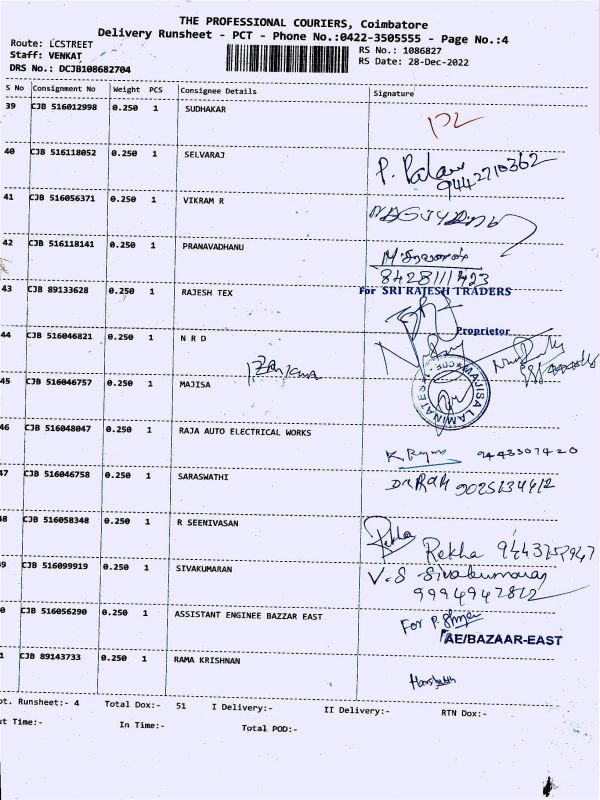 THE PROFESSIONAL COURIERS, Coimbatore
Delivery Runsheet - PCT - Phone No.:0422-3505555 - Page No.:4
Route: LCSTREET
Staff: VENKAT
DRS No.: DCJB108682704
RS No.: 1086827
RS Date: 28-Dec-2022
S No Consignment No Weight PCS Consignee Details Signature
39 CJB 516012998 0.250 1 SUDHAKAR
40 CJB 516118052 0.250 1 SELVARAJ
9442710362
41 CJB 516056371 0.250 1 VIKRAM R
42 CJB 516118141 0.250 1 PRANAVADHANU
8428111423
43 CJB 89133628 0.250 1 RAJESH TEX
For SRI RAJESH TRADERS
Proprietor
44 CJB 516046821 0.250 1 N R D
45 CJB 516046757 0.250 1 MAJISA
MAJISA LAMINATES
46 CJB 516048047 0.250 1 RAJA AUTO ELECTRICAL WORKS
9443307420
47 CJB 516046758 0.250 1 SARASWATHI
48 CJB 516058348 0.250 1 R SEENIVASAN
Rekha Rekha
49 CJB 516099919 0.250 1 SIVAKUMARAN
V.S Sivakumaran
9994947812
0 CJB 516056290 0.250 1 ASSISTANT ENGINEE BAZZAR EAST
For
AE/BAZAAR-EAST
1 CJB 89143733 0.250 1 RAMA KRISHNAN
ot. Runsheet:- 4 Total Dox:- 51 I Delivery:- II Delivery:- RTN Dox:-
ut Time:- In Time:- Total POD:-